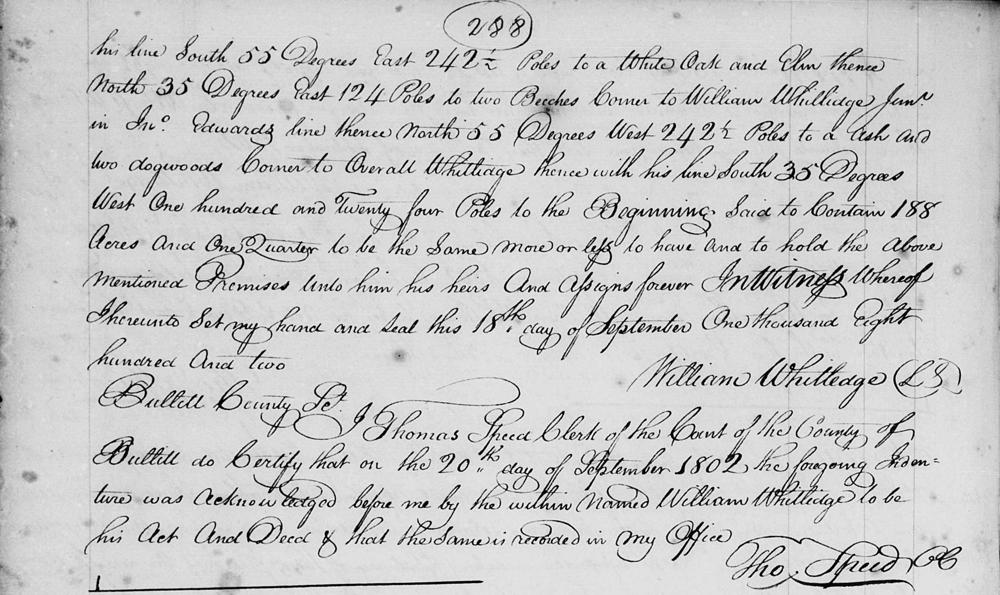 288
his line South 55 Degrees East 242½ Poles to a White Oak and Elm thence
North 35 Degrees East 124 Poles to two Beeches Corner to William Whitlidge Junr.
in Jno. Edwards line thence North 55 Degrees West 242½ Poles to a Ash and
two dogwoods Corner to Overall Whitlidge thence with his line South 35 Degrees
West One hundred and Twenty four Poles to the Beginning Said to Contain 188
Acres And One Quarter to be the Same more or less to have and to hold the above
Mentioned Premises Unto him his heirs And Assigns forever In Witness Whereof
I hereunto Set my hand and Seal this 18th. day of September One thousand Eight
hundred And two
William Whitledge (LS)
Bullitt County Sct.
I Thomas Speed Clerk of the Court of the County of
Bullitt do Certify that on the 20th. day of September 1802 the foregoing Inden=
ture was Acknowledged before me by the within Named William Whitlidge to be
his Act And Deed & that the Same is recorded in my Office
Tho. Speed CC